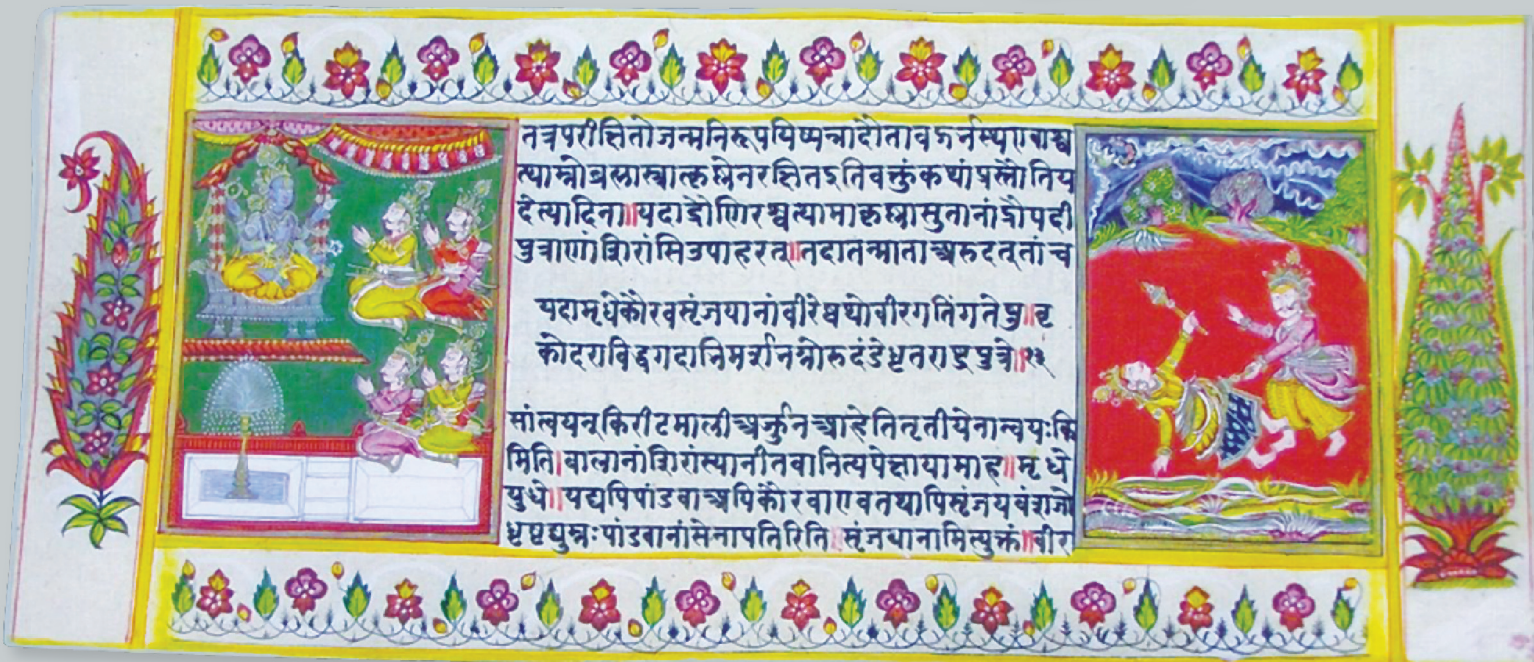 तत्रपरीक्षितोजन्मनिरूपयिष्यन्नादौतावदर्जनस्यएवाश्व
त्थाम्नोब्रह्मास्त्रात्कृष्णेनरक्षितइतिवक्तुंकथांप्रस्तौतिय
देत्यादिना॥यदाद्रौणिरश्वत्थामाकृष्णासुतानांद्रौपदी
पुत्राणांशिरांसिउपाहरत्॥तदातन्माताअरुदत्तांच
यदामृधेकौरवसृंजयानांवीरेष्वथोवीरगतिंगतेषु॥वृ
कोदराविद्धगदाभिमर्शभग्नोरुदंडेधृतराष्ट्रपुत्रे॥१३
सांत्वयन्किरीटमालीअर्जुनआहेतितृतीयेनान्वयःकि
मिति।बालानांशिरांस्यानीतवानित्यपेक्षायामाह॥मृधे
युधे॥यद्यपिपांडवाअपिकौरवाएवतथापिसृंजयवंशजो
धृष्टद्युम्नःपांडवानांसेनापतिरिति॥सृंजयानामित्युक्तं॥वीरा